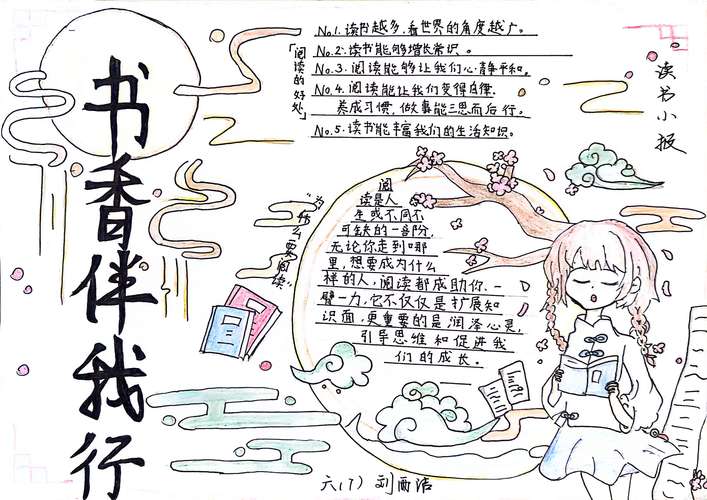 书香伴我行
「阅读的好处」
No.1.读书越多,看世界的角度越广。
No.2.读书能够增长常识。
No.3.阅读能够让我们心静平和。
No.4.阅读能让我们变得自律,
养成习惯,做事能三思而后行。
No.5.读书能丰富我们的生活知识。
读书小报
"为什么要阅读"
阅
读是人
生或不同不
可缺的一部分,
无论你走到哪
里,想要成为什么
样的人,阅读都成助你一
臂一力,它不仅仅是扩展知
识面,更重要的是润泽心灵,
引导思维和促进我
们的成长。
六(7) 刘雨洁